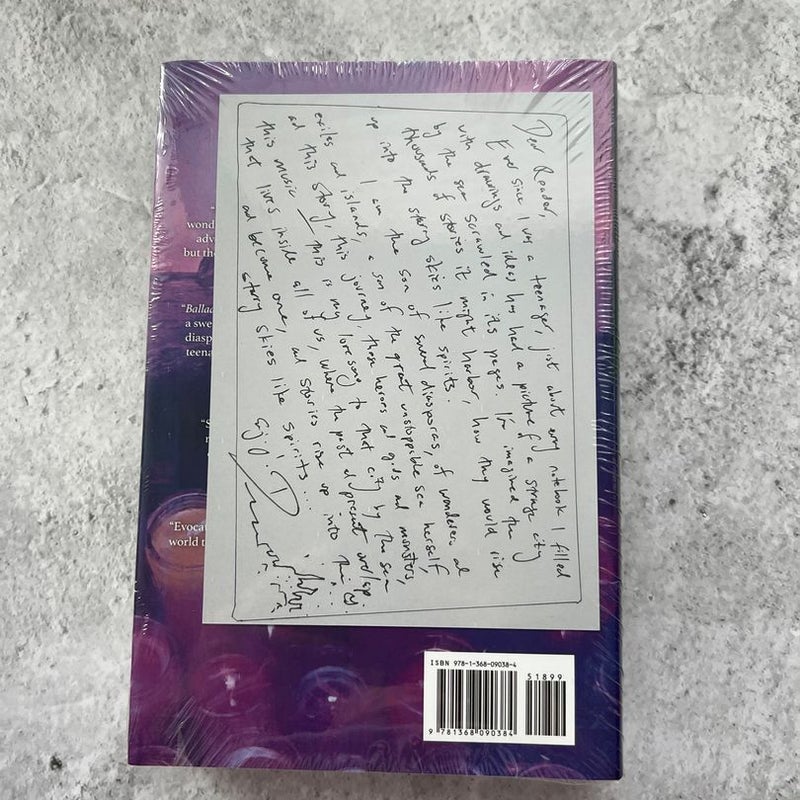 Dear Reader,
Ever since I was a teenager, just about every notebook I filled
with drawings and ideas has had a picture of a strange city
by the sea scrawled in its pages. I've imagined the
thousands of stories it might harbor, how they would rise
up into the starry skies like spirits.
I am the son of several diasporas, of wanderers and
exiles and islands, a son of the great unstoppable sea herself,
and this story, this journey, these heroes and gods and monsters,
this music — this is my lovesong to that city by the sea
that lives inside all of us, where the past and present overlap
and become one, and stories rise up into the
starry skies like spirits...
"
wond
adv
but the
"Ballad
a swe
diasp
teena
"S
"Evocat
world t
ISBN 978-1-368-09038-4
51899
9 781368 090384